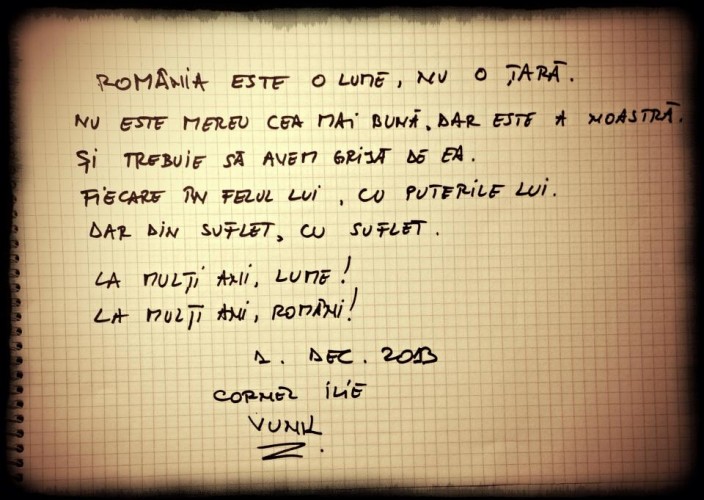 ROMÂNIA ESTE O LUME, NU O ȚARĂ.
NU ESTE MEREU CEA MAI BUNĂ, DAR ESTE A NOASTRĂ.
ȘI TREBUIE SĂ AVEM GRIJĂ DE EA.
FIECARE ÎN FELUL LUI, CU PUTERILE LUI.
DAR DIN SUFLET, CU SUFLET.
LA MULȚI ANI, LUME!
LA MULȚI ANI, ROMÂNI!
1. DEC. 2013
CORNEL ILIE
VUNK